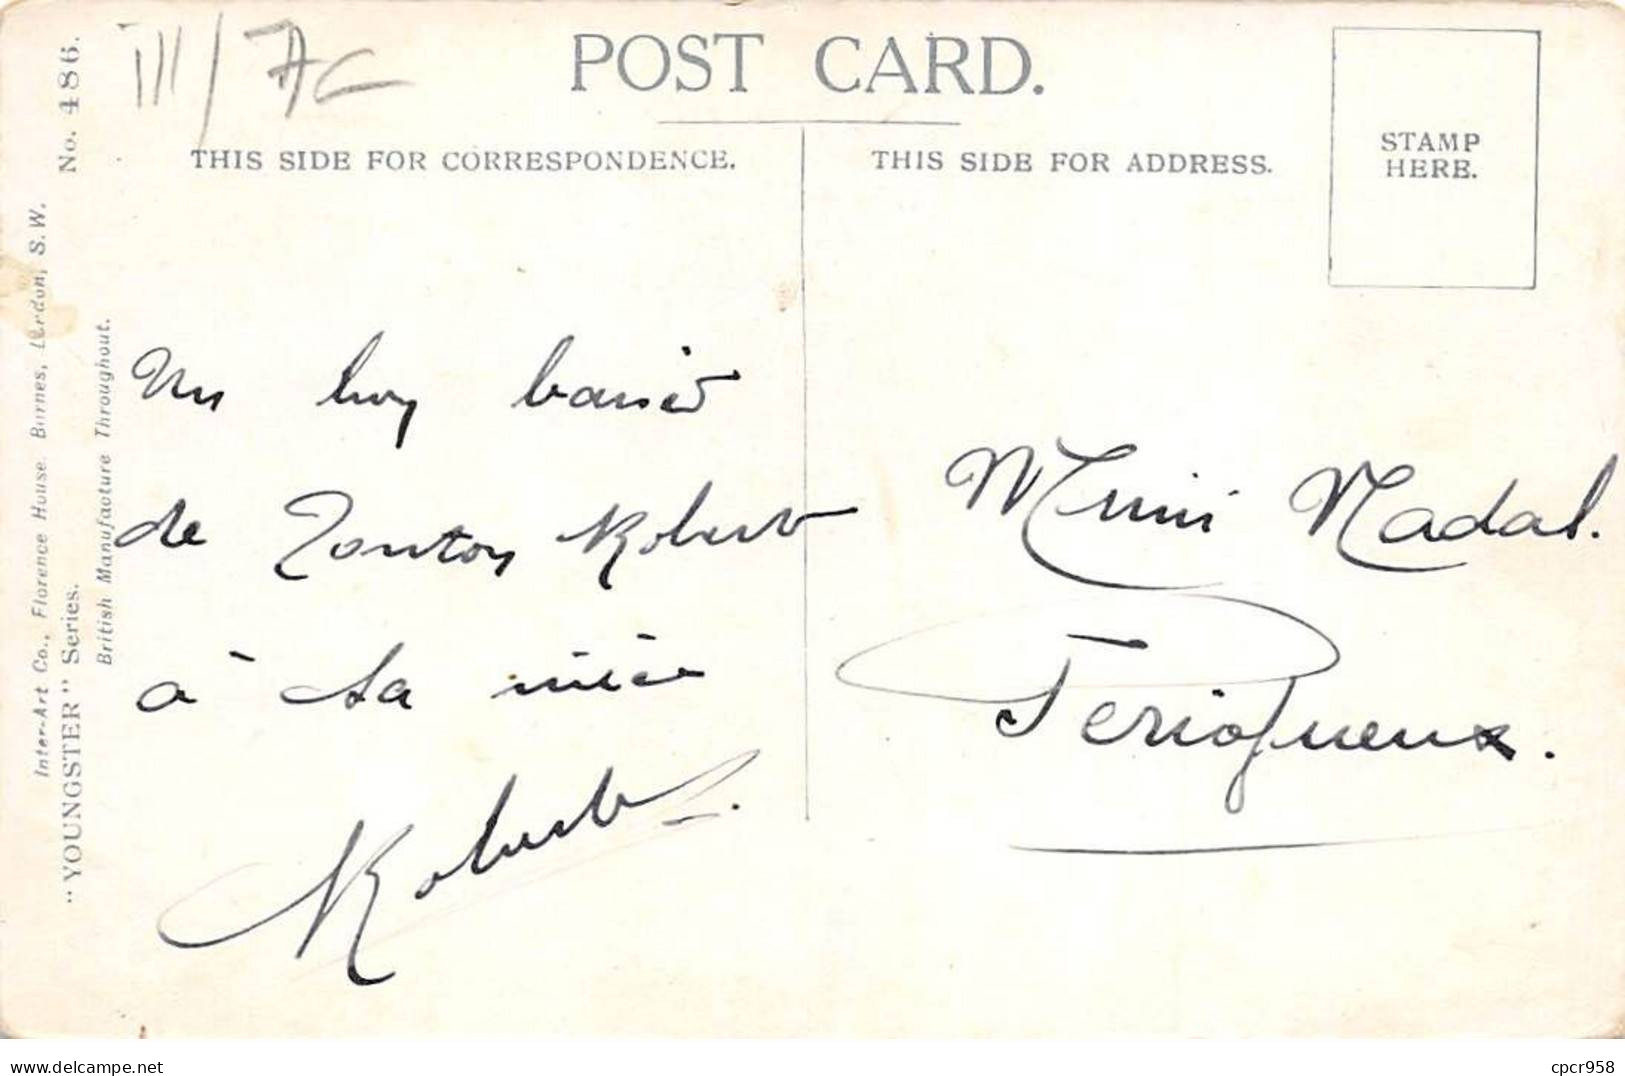 III/AC
POST CARD.
THIS SIDE FOR CORRESPONDENCE.
THIS SIDE FOR ADDRESS.
STAMP
HERE.
No. 486.
Inter-Art Co., Florence House, Barnes, London, S.W.
"YOUNGSTER" Series.
British Manufacture Throughout.
Un baiser
de Tonton Robert
à sa nièce
Robert.
Mimi Nadal.
Perigueux.
Delcampe.net
cpcr958